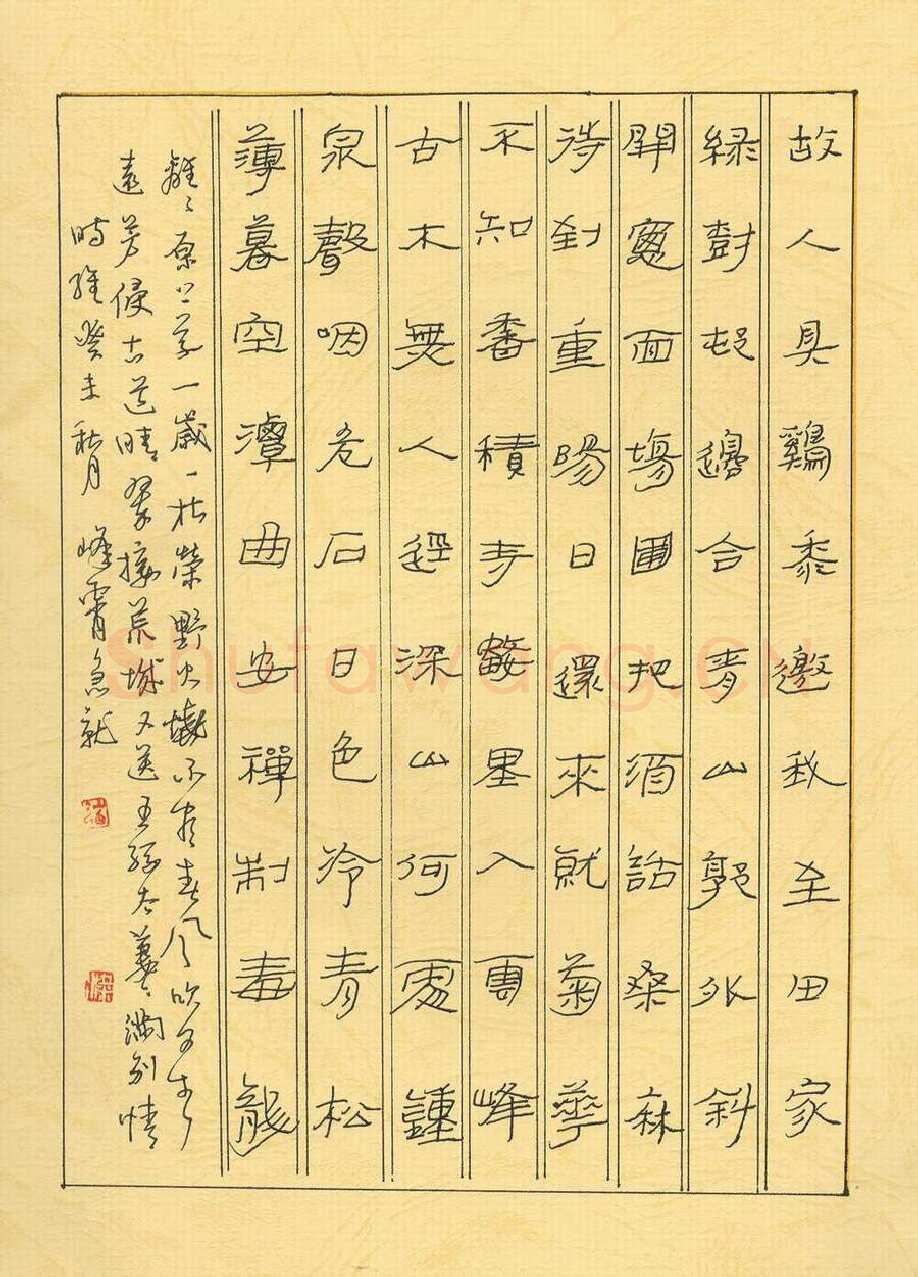 故人具鷄黍邀我至田家
緑對邨邊合青山郭外斜
開窓面場圃把酒話桑麻
待到重陽日還來就菊華
不知香積寺數里入雲峰
古木無人徑深山何處鍾
泉聲咽危石日色冷青松
薄暮空潭曲安禪制毒龍
離〻原上草一歲一枯榮野火燒不盡春風吹又生
遠芳侵古道晴翠接荒城又送王孫去萋〻滿別情
時維癸未秋月 峰霄急就
shufawang.cn